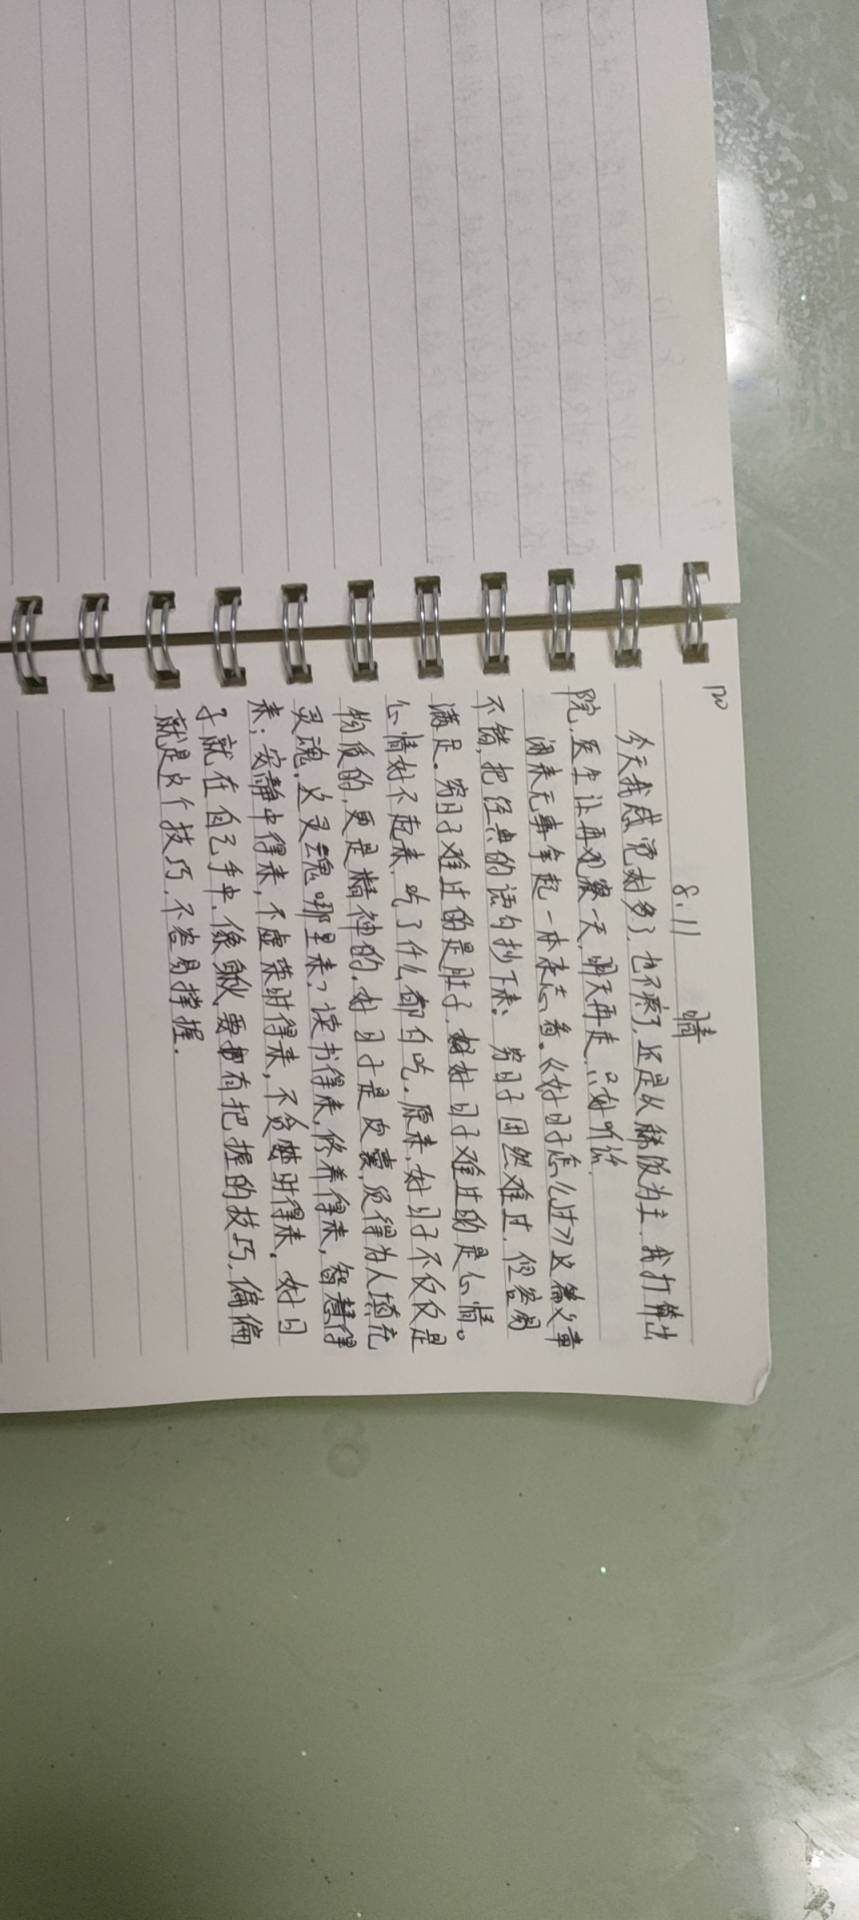 120
8.11 晴
今天我感觉好多了,也不疼了,还是以稀饭为主,我打算出
院,医生让再观察一天,明天再走,只好听话.
闲来无事拿起一本杂志看。《好日子怎么过》这篇文章
不错,把经典的语句抄下来:穷日子固然难过,但容易
满足。穷日子难过的是肚子,好日子难过的是心情。
心情好不起来,吃了什么都白吃。原来,好日子不仅仅是
物质的,更是精神的.好日子是皮囊,须得为人填充
灵魂.这灵魂哪里来?读书得来,修养得来,智慧得
来;安静中得来,不虚荣时得来,不贪婪时得来.好日
子就在自己手中.像鳅要拥有把握的技巧,偏偏
就是这个技巧,不容易掌握.